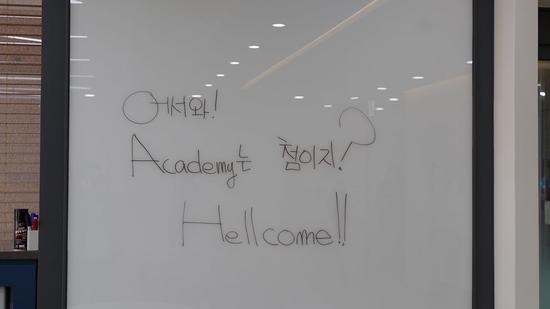 어서와!
Academy는 첨이지!?
Hellcome!!